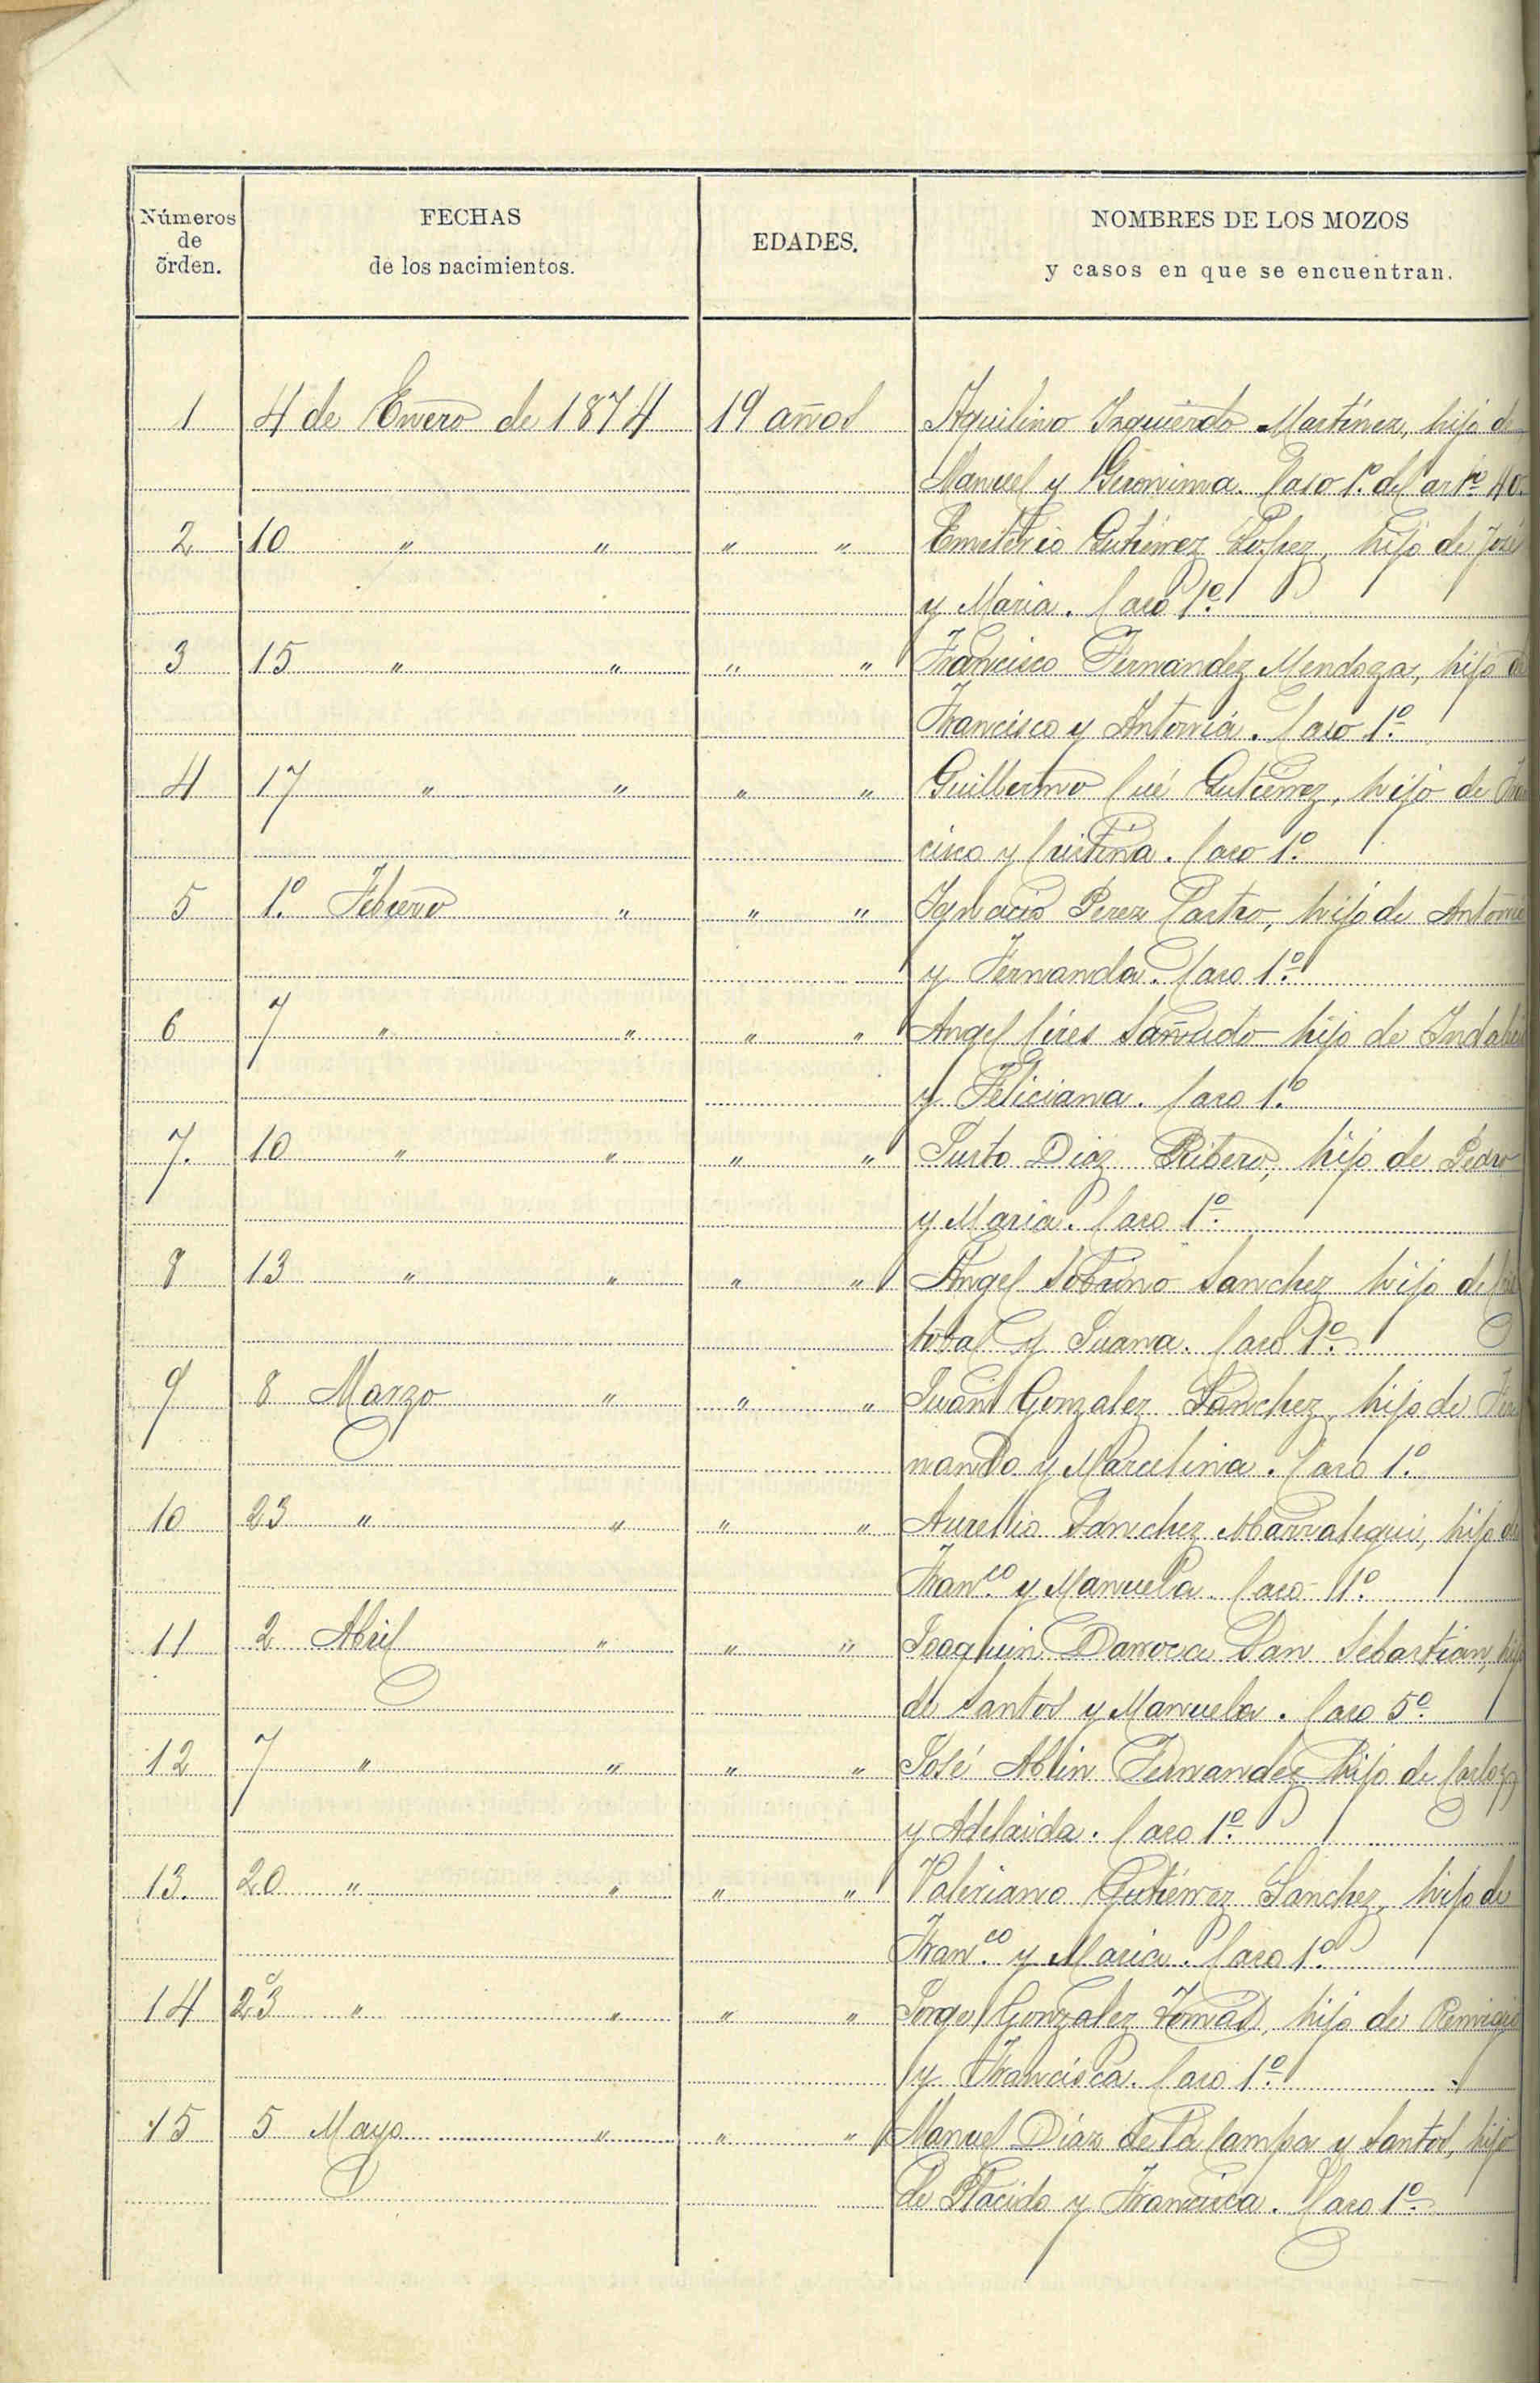 Números de órden.
FECHAS de los nacimientos.
EDADES.
NOMBRES DE LOS MOZOS y casos en que se encuentran.
1 4 de Enero de 1874 19 años Aquilino Izquierdo Martínez, hijo de
Manuel y Geronima. Caso 1º del artº 40.
2 10 " " " " Emeterio Gutiérrez López, hijo de José
y Maria. Caso 1º
3 15 " " " " Francisco Fernandez Mendoza, hijo de
Francisco y Antonia. Caso 1º
4 17 " " " " Guillermo Cué Gutiérrez, hijo de Fran
cisco y Cristina. Caso 1º
5 1º Febrero " " " Ignacio Perez Castro, hijo de Antonio
y Fernanda. Caso 1º
6 7 " " " " Angel Cires Sañudo hijo de
y Feliciana. Caso 1º
7. 10 " " " " Justo Diaz Ribero, hijo de Pedro
y Maria. Caso 1º
8 13 " " " " Angel Sobrino Sanchez hijo de Cris
tobal y Juana. Caso 1º
9 8 Marzo " " " Juan Gonzalez Sanchez, hijo de Fer
nando y Marcelina. Caso 1º
10 23 " " " " Aurelio Sanchez hijo de
Franco y Manuela. Caso 1º
11 2 Abril " " " Joaquin Darroca San Sebastian, hijo
de Santos y Manuela. Caso 5º
12 7 " " " " José Ablin Fernandez hijo de Carlos
y Adelaida. Caso 1º
13. 20 " " " " Valeriano Gutiérrez Sanchez, hijo de
Franco y Maria. Caso 1º
14 23 " " " " Jorge Gonzalez Tomás, hijo de Remigio
y Francisca. Caso 1º
15 5 Mayo " " " Manuel Díaz de la Campa y Santos, hijo
de Plácido y Francisca. Caso 1º